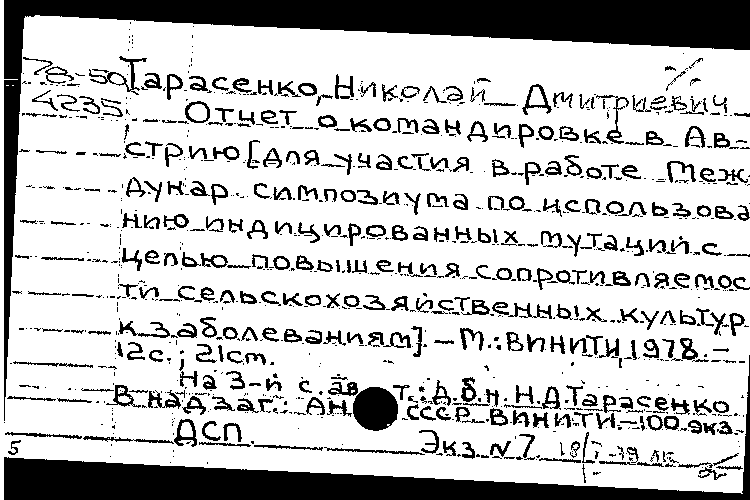 78-50 Тарасенко, Николай Дмитриевич
4235 Отчет о командировке в Ав-
стрию [для участия в работе Меж-
дунар. симпозиума по использова
нию индицированных мутаций с
целью повышения сопротивляемос
ти сельскохозяйственных культур
к заболеваниям]. – М.: ВИНИТИ, 1978. –
12с.; 21см.
На 3-й с. ав т.: д.б.н. Н.Д.Тарасенко
В надзаг.: АН СССР. ВИНИТИ. – 100 экз.
ДСП. Экз N7.
5